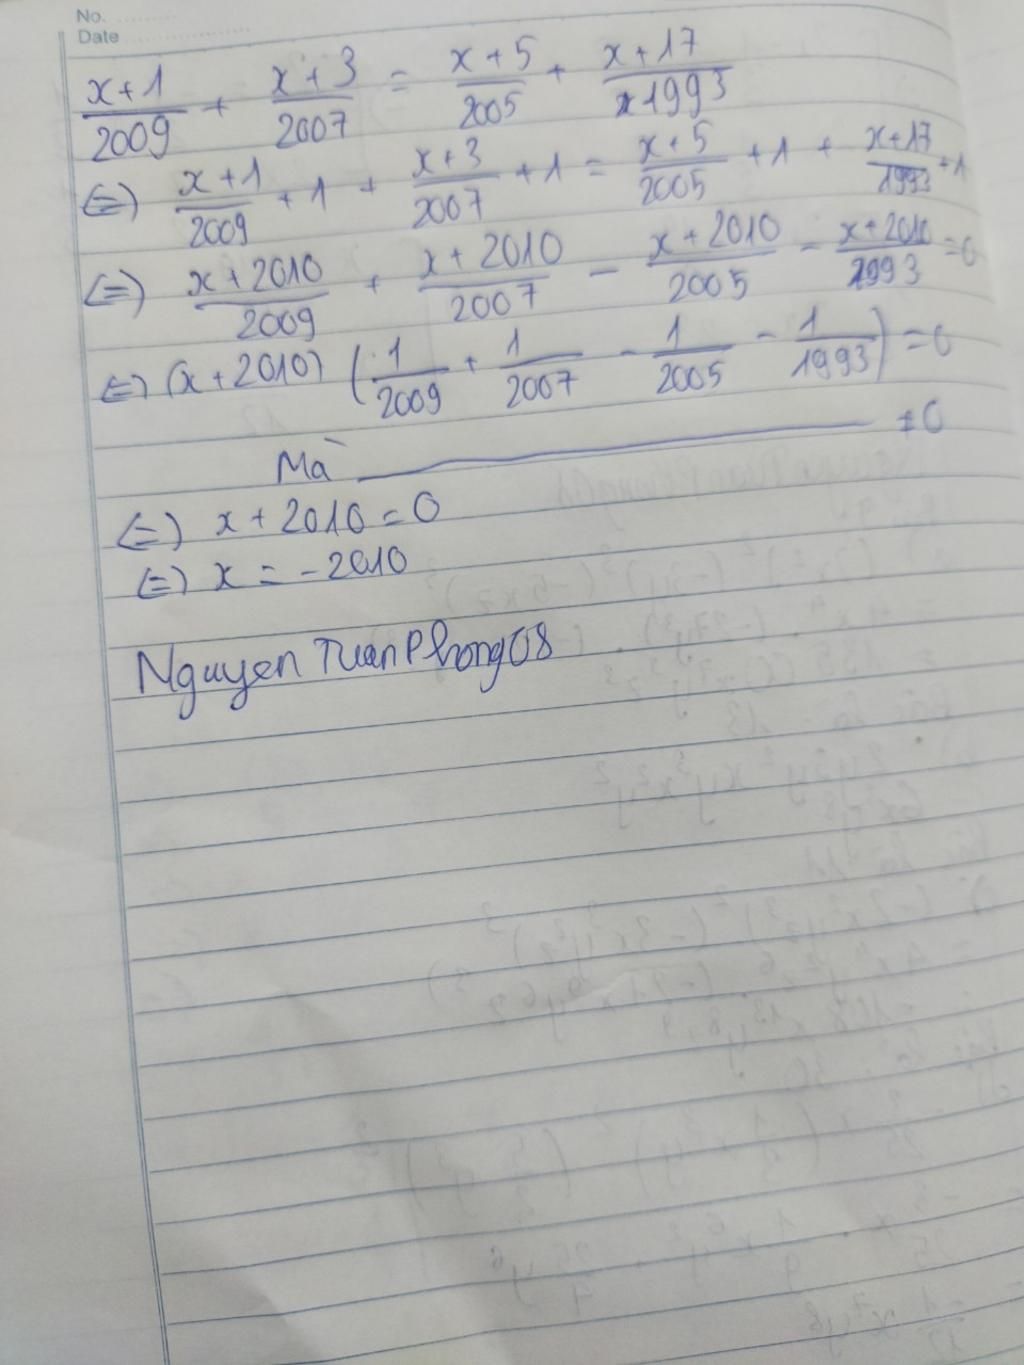 No.
Date
x+1/2009 + x+3/2007 = x+5/2005 + x+17/1993
(=) x+1/2009 + 1 + x+3/2007 + 1 = x+5/2005 + 1 + x+17/1993 + 1
(=) x+2010/2009 + x+2010/2007 - x+2010/2005 - x+2010/1993 = 0
(=) (x+2010) (1/2009 + 1/2007 - 1/2005 - 1/1993) = 0
Mà ≠ 0
(=) x + 2010 = 0
(=) x = -2010
Nguyen TuanPhong08